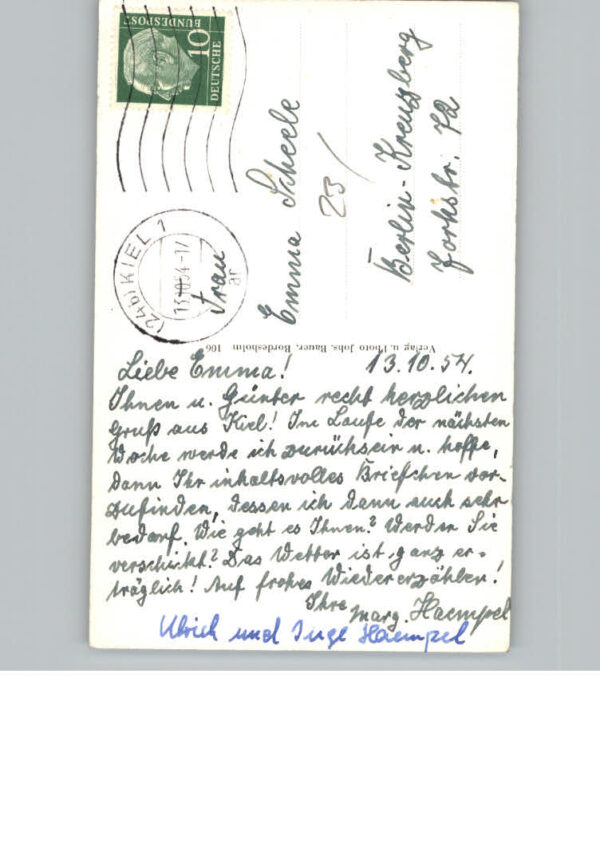 Liebe Emma! 13.10.54.
Ihnen u. Günter recht herzlichen
Gruß aus Kiel! Im Laufe der nächsten
Woche werde ich zurücksein u. hoffe,
dann Ihr inhaltsvolles Briefchen vor-
zufinden, dessen ich dann auch sehr
bedarf. Wie geht es Ihnen? Werden Sie
verschickt? Das Wetter ist ganz er-
träglich! Auf frohes Wiedererzählen!
Ihre Marg. Haempel
Ulrich und Inge Haempel
Verlag u. Photo Johs. Bauer, Bordesholm 106
Frau
Emma Scheele
23
Berlin-Kreuzberg
Yorkstr. 72
DEUTSCHE
BUNDESPOST
10
(24b) KIEL 1
13.10.54-17
ar